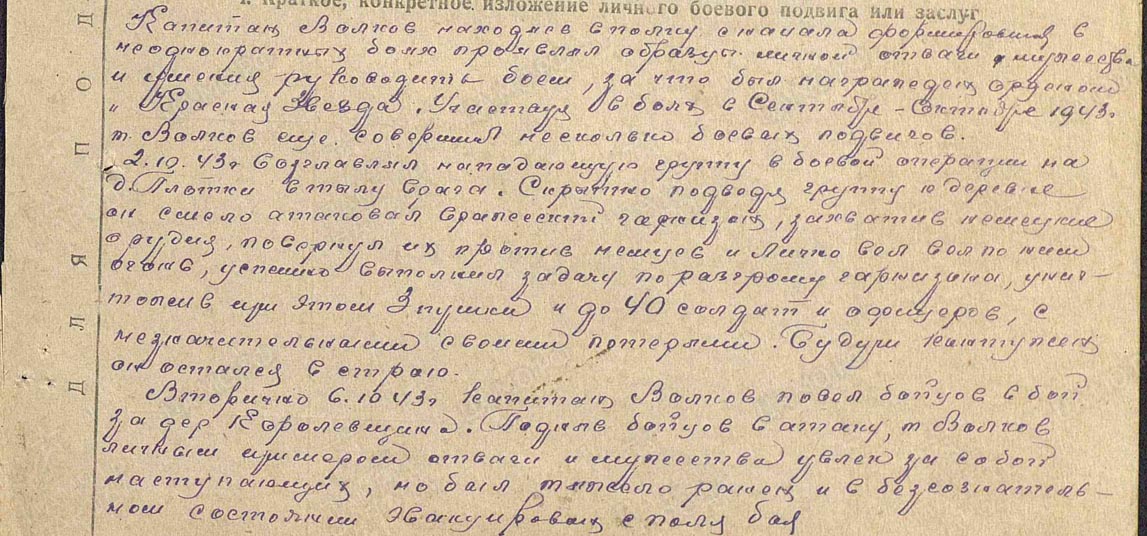 1. Краткое, конкретное изложение личного боевого подвига или заслуг
Капитан Волков находясь в полку с начала формировния в
неоднократных боях проявлял образцы личной отваги, мужества
и умения руководить боем, за что был награжден орденом
"Красная Звезда. Участвуя в боях в Сентябре-Октябре 1943г
т. Волков еще совершил несколько боевых подвигов.
2.10.43г возглавлял нападающую группу в боевой операции на
д. Плотки в тылу врага. Скрытно подводя группу к деревне
он смело атаковал вражеский гарнизон, захватив немецкие
орудия, повернул их против немцев и лично вел по ним
огонь, успешно выполнил задачу по разгрому гарнизона, унич-
тожив при этом 3 пушки и до 40 солдат и офицеров, с
незначительными своими потерями. Будучи контужен
он остался в строю.
Вторично 6.10 43г капитан Волков повел бойцов в бой
за дер Королевщина. Подняв бойцов в атаку, т Волков
личным примером отваги и мужества увлек за собой
наступающих, но был тяжело ранен и в безсознатель-
ном состоянии эвакуирован с поля боя
Д Л Я П О Д